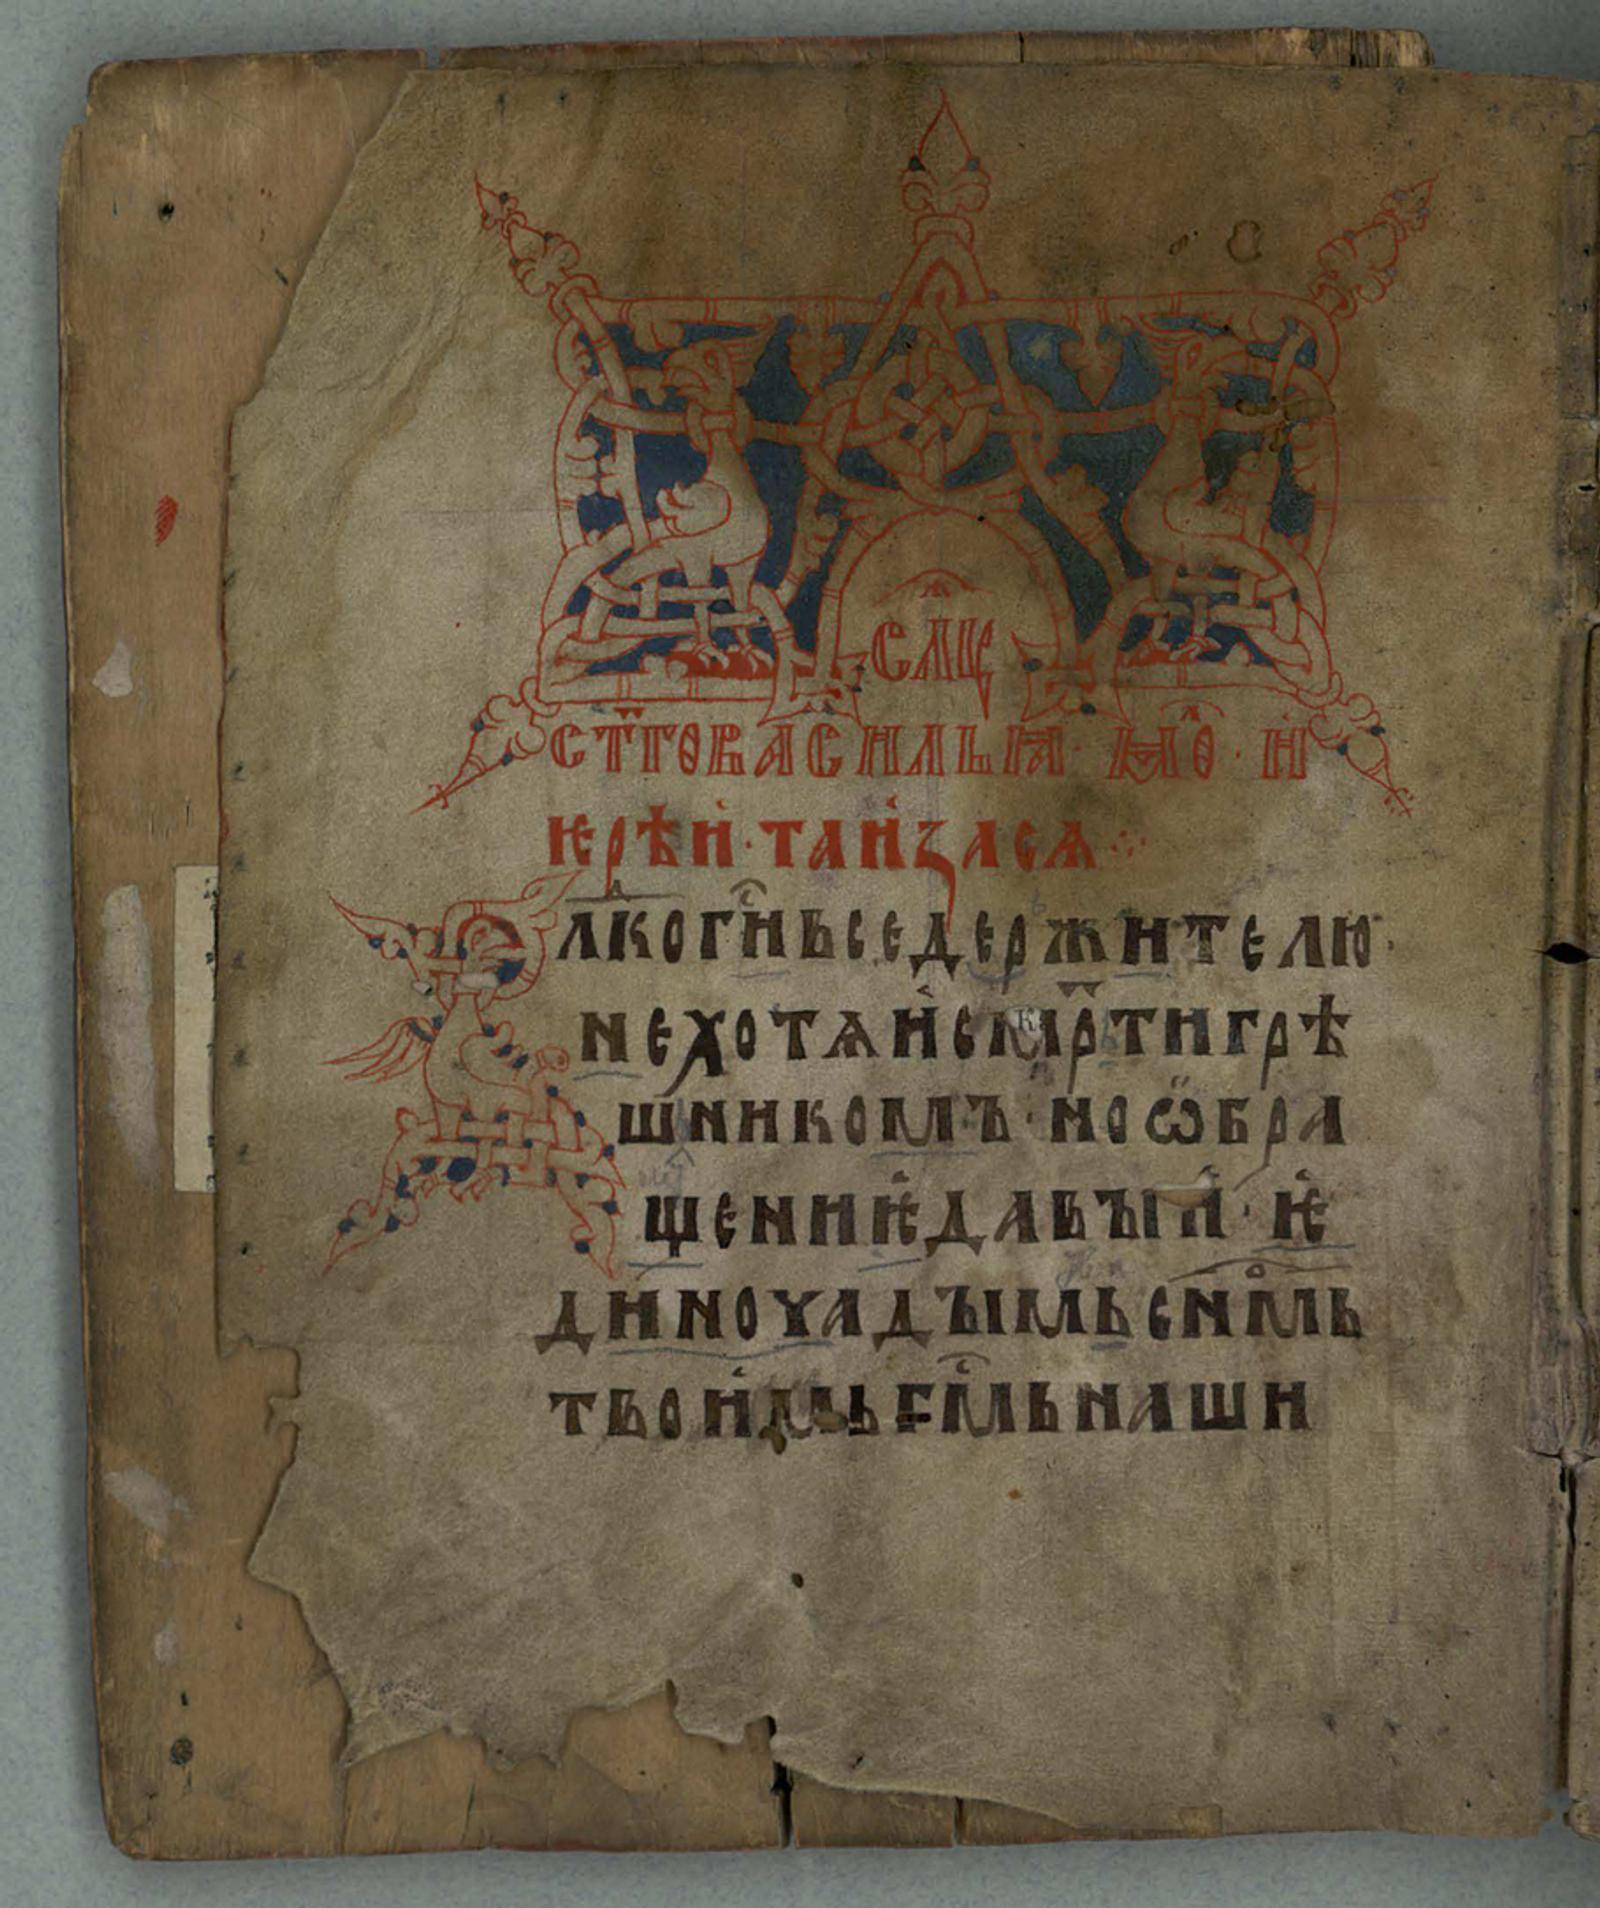 слц
ст҃гѡ васильꙗ · мл҃о · и҆
ѥрѣи҆ · таи҆ за сѧ
Влⷣкоги҃вьседержителю ·
нехотѧи҆смр҃тигрѣ
шникомъ · ноѡбра
щениѥдавъıи҆ · ѥ
диноуадъıмьсн҃мь
твои҆мьгм҃ьнаши